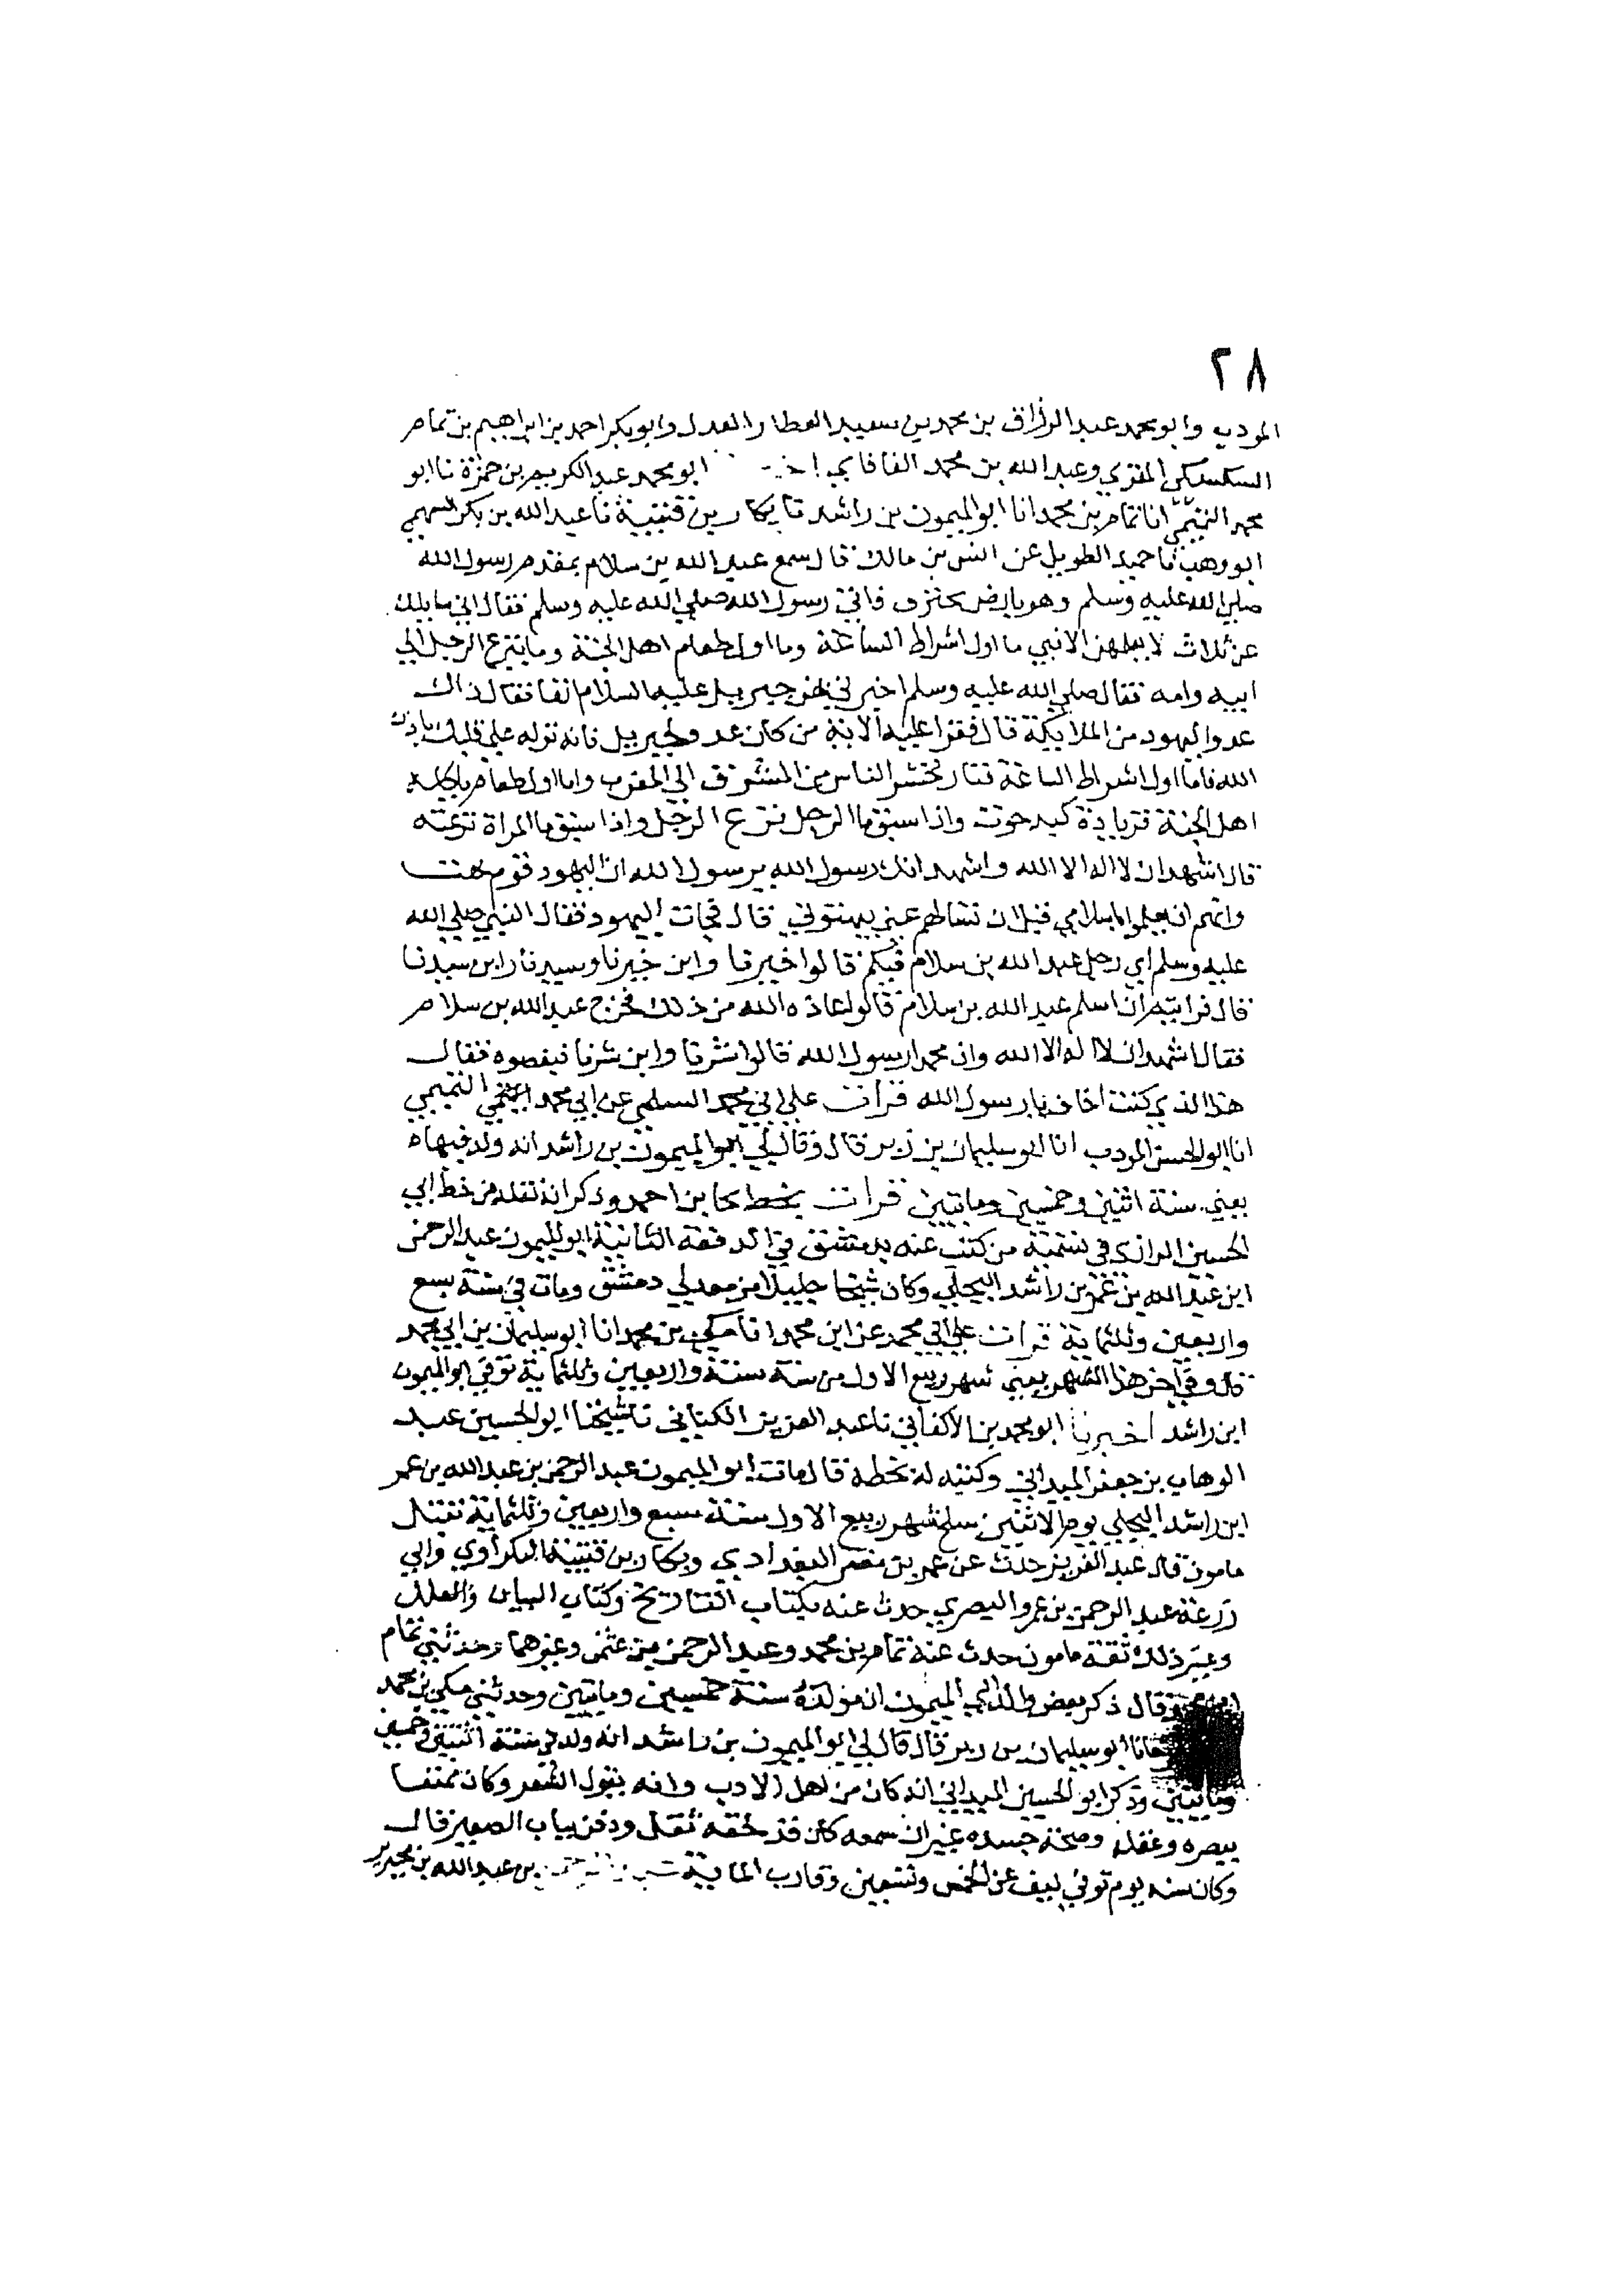 ٢٨
المودب وابو محمد عبد الرزاق بن محمد بن سعيد العطار المعدل وابو بكر احمد بن ابراهيم بن تمام
السكسكي المقري وعبد الله بن محمد ابو محمد عبد الكريم بن حمزة نا ابو
محمد التميمي انا تمام بن محمد انا ابو الميمون بن راشد نا بكار بن قتيبة نا عبد الله بن بكر السهمي
ابو وهب نا حميد الطويل عن انس بن مالك قال سمع عبد الله بن سلام بمقدم رسول الله
صلى الله عليه وسلم وهو بارض يحترف فاتى رسول الله صلى الله عليه وسلم فقال اني سايلك
عن ثلاث لا يعلمهن الا نبي ما اول اشراط الساعة وما اول طعام اهل الجنة وما ينزع الرجل الى
ابيه وامه فقال صلى الله عليه وسلم اخبرني بهن جبريل عليه السلام انفا فقال ذاك
عدو اليهود من الملايكة قال فقرا عليه الاية من كان عدوا لجبريل فانه نزله على قلبك باذن
الله فاما اول اشراط الساعة فنار تحشر الناس من المشرق الى المغرب واما اول طعام ياكله
اهل الجنة فزيادة كبد حوت واذا سبق ما الرجل نزع الرجل واذا سبق ما المراة نزعته
قال اشهد ان لا اله الا الله واشهد انك رسول الله يرسول الله ان اليهود قوم بهت
وانهم ان يعلموا باسلامي قبل ان تسالهم عني بهتوني قال فجات اليهود فقال النبي صلى الله
عليه وسلم اي رجل عبد الله بن سلام فيكم قالوا خيرنا وابن خيرنا وسيدنا وابن سيدنا
قال فرايتم ان اسلم عبد الله بن سلام قالوا عاذه الله من ذلك فخرج عبد الله بن سلام
فقال اشهد ان لا اله الا الله وان محمدا رسول الله قالوا شرنا وابن شرنا فنقصوه فقال
هذا الذي كنت اخاف يا رسول الله قرات على ابي محمد السلمي عن ابي محمد التميمي
انا ابو الحسن المودب انا ابو سليمان بن زبر قال وقال لي ابو الميمون بن راشد انه ولد فيها
يعني سنة اثنين وخمسين ومايتين قرات بخط نجا بن احمد وذكر انه نقله من خط ابي
الحسين الرازي في تسمية من كتب عنه بدمشق في الدفعة الثانية ابو الميمون عبد الرحمن
ابن عبد الله بن عمر بن راشد البجلي وكان شيخا جليلا من معدلي دمشق ومات في سنة سبع
واربعين وثلثماية قرات على ابي محمد عن ابن محمد انا مكي بن محمد انا ابو سليمان بن ابي محمد
قال وفي اخر هذا الشهر يعني شهر ربيع الاول من سنة ستة واربعين وثلثماية توفي ابو الميمون
ابن راشد اخبرنا ابو محمد بن الاكفاني نا عبد العزيز الكتاني نا شيخنا ابو الحسين عبد
الوهاب بن جعفر الميداني وكتبه لي بخطه قال مات ابو الميمون عبد الرحمن بن عبد الله بن عمر
ابن راشد البجلي يوم الاثنين سلخ شهر ربيع الاول سنة سبع واربعين وثلثماية
مامون قال عبد العزيز حدث عن عمر بن مضر البغدادي وبكار بن قتيبة البكراوي وابي
زرعة عبد الرحمن بن عمرو البصري حدث عنه بكتاب التاريخ وكتاب البيان والعلل
وغير ذلك ثقة مامون حدث عنه تمام بن محمد وعبد الرحمن بن عثمن وغيرهما وحدثني تمام
وقال ذكر بعض ولد ابي الميمون ان مولده سنة خمسين ومايتين وحدثني مكي بن محمد
انا ابو سليمان بن زبر قال قال لي ابو الميمون بن راشد انه ولد في سنة اثنتين وخمسين
ومايتين وذكر ابو الحسين الميداني انه كان من اهل الادب وانه يقول الشعر وكان ممتعا
ببصره وعقله وصحة جسده غير ان سمعه كان قد لحقه ثقل ودفن بباب الصغير قال
وكان سنه يوم توفي نيف عن الخمس وتسعين وقارب الماية بن عبد الله بن